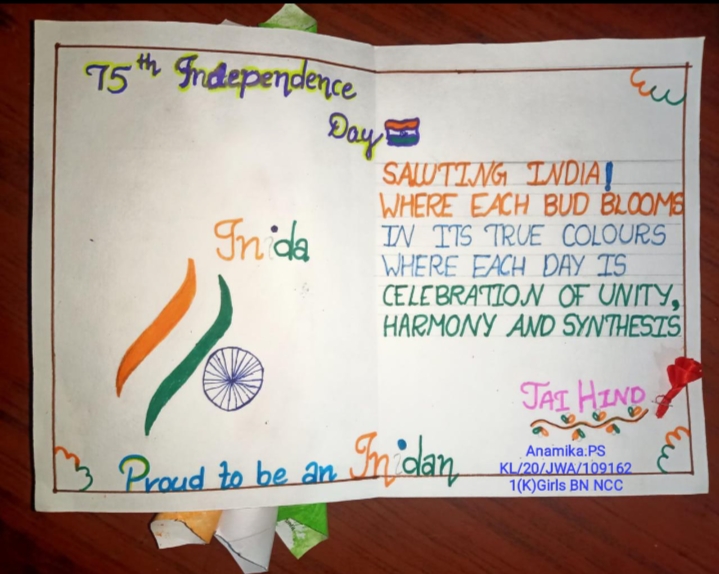 75th Independence
Day
Inida
Proud to be an Inidan
SALUTING INDIA!
WHERE EACH BUD BLOOMS
IN ITS TRUE COLOURS
WHERE EACH DAY IS
CELEBRATION OF UNITY,
HARMONY AND SYNTHESIS
JAI HIND
Anamika.PS
KL/20/JWA/109162
1(K)Girls BN NCC